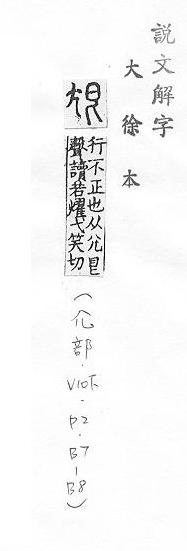 説文解字
大徐本
行不正也从尣皀
聲讀若燿弋笑切
(尣部.V10下.P2.B7-B8)